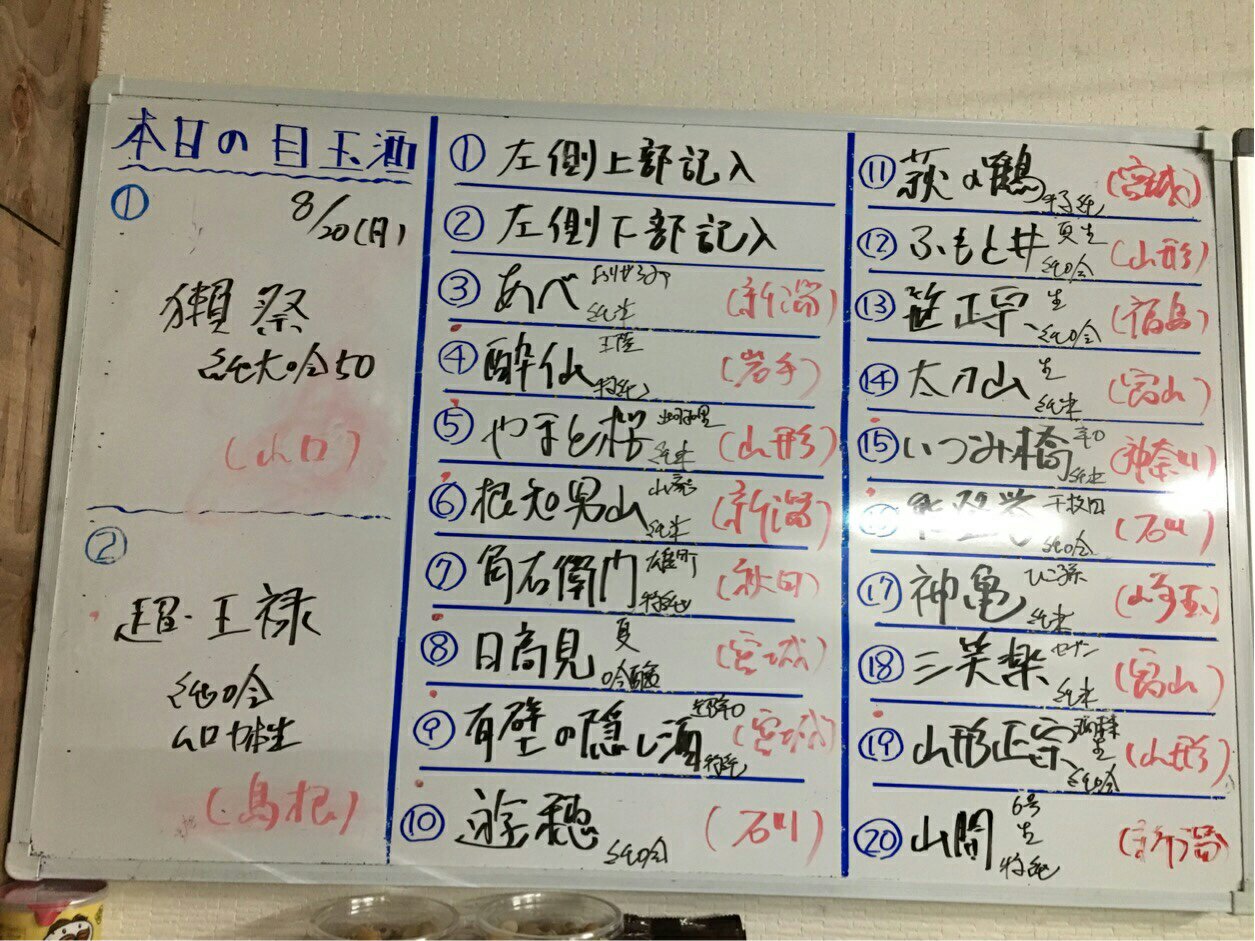 本日の目玉酒
①
8/20(月)
獺祭
純大吟50
(山口)
②
超・王禄
純吟
(島根)
① 左側上部記入
② 左側下部記入
③ あべ おりがらみ 純米 (新潟)
④ 酔仙 特純 (岩手)
⑤ やまと桜 純米 (山形)
⑥ 根知男山 純米 (新潟)
⑦ 角右衛門 雄町 特純 (秋田)
⑧ 日高見 夏 吟醸 (宮城)
⑨ 有壁の隠し酒 特純 (宮城)
⑩ 遊穂 純吟 (石川)
⑪ 萩の鶴 特純 (宮城)
⑫ ふもと井 夏生 純吟 (山形)
⑬ 笹正宗 生 純吟 (福島)
⑭ 太刀山 生 純米 (富山)
⑮ いづみ橋 辛口 純米 (神奈川)
⑯ 能登誉 千枚田 純吟 (石川)
⑰ 神亀 ひこ孫 純米 (埼玉)
⑱ 三笑楽 セブン 純米 (富山)
⑲ 山形正宗 生 純吟 (山形)
⑳ 山間 6号 生 特純 (新潟)